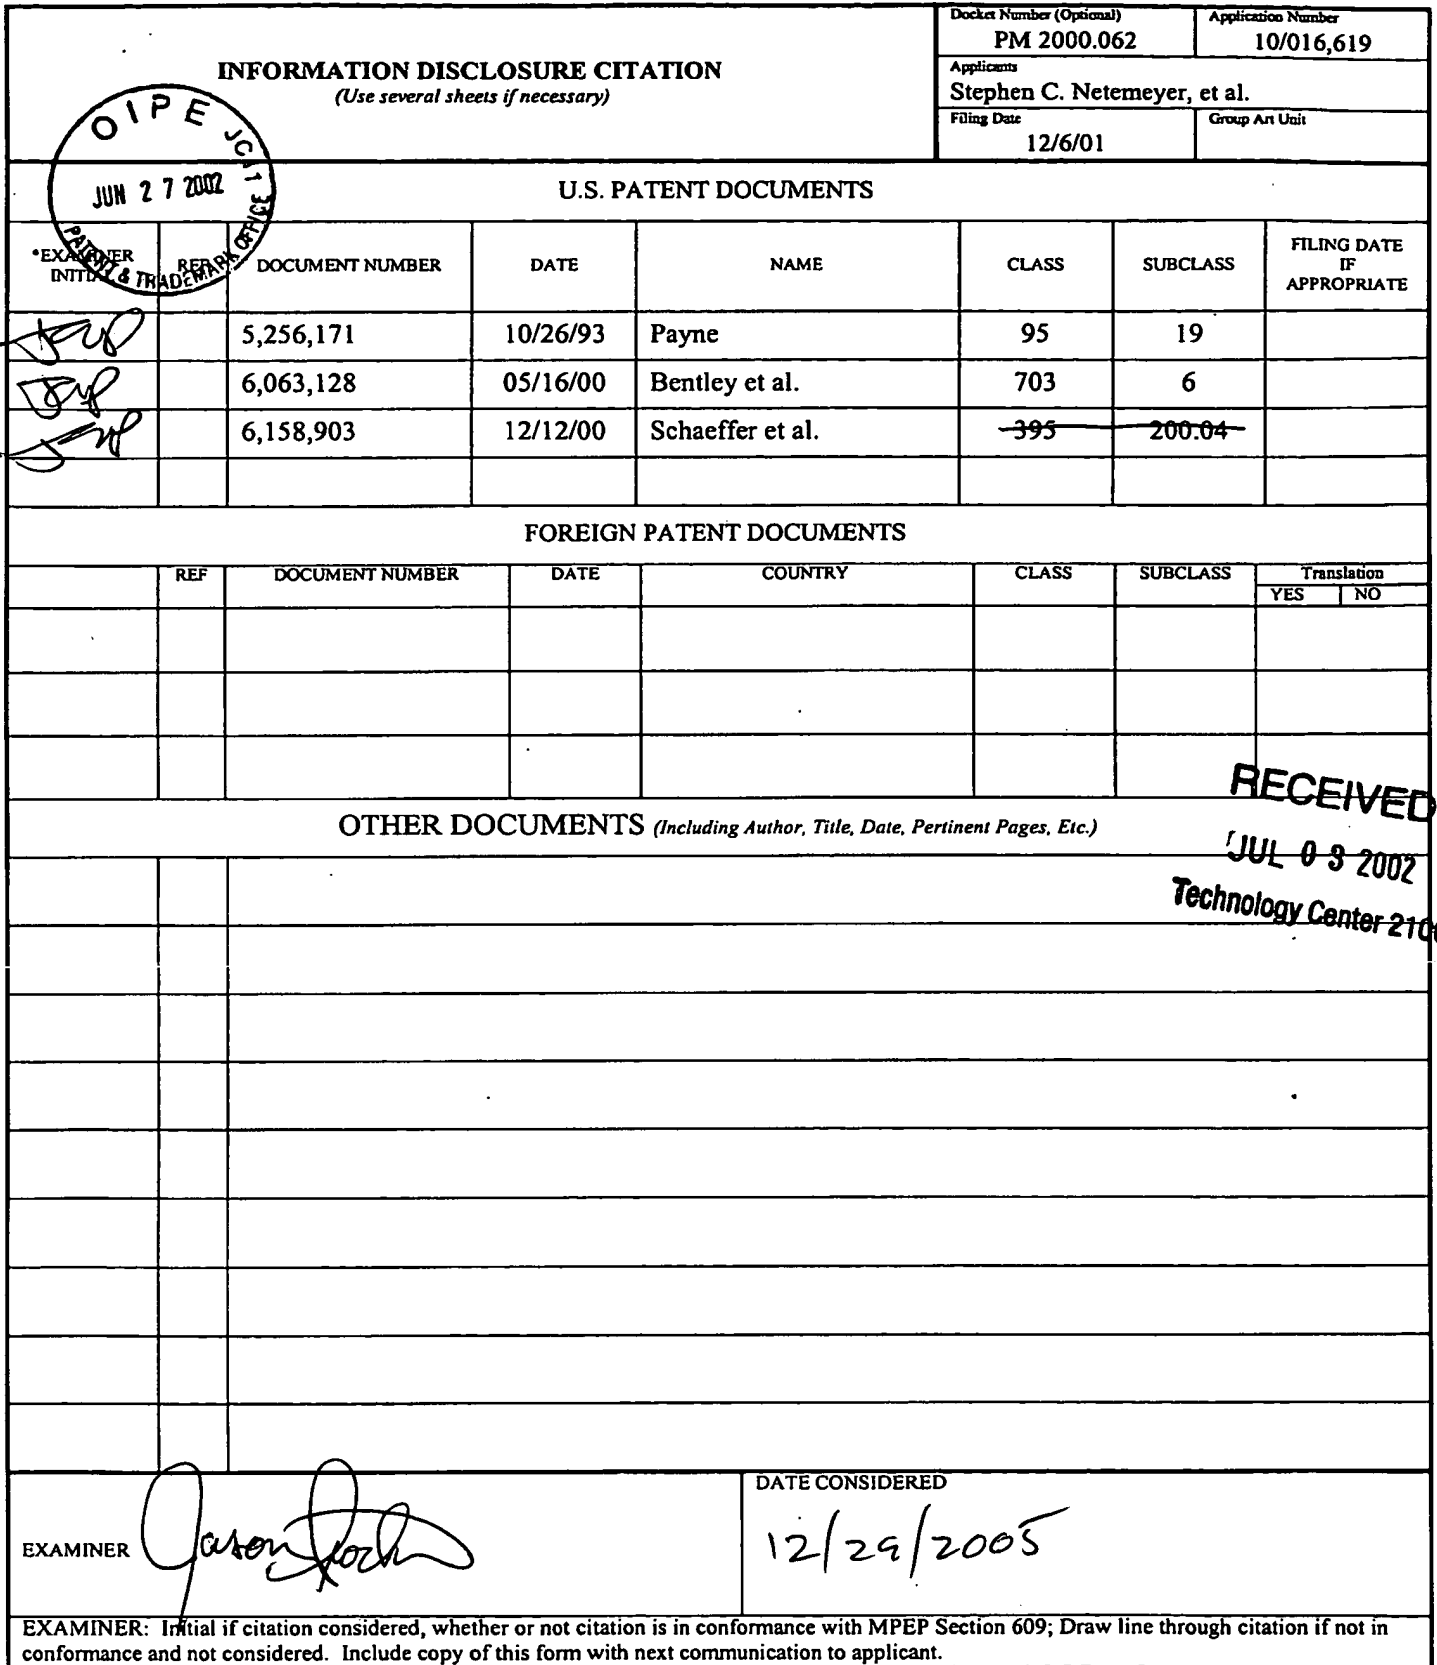 Docket Number (Optional)
PM 2000.062
Application Number
10/016,619
INFORMATION DISCLOSURE CITATION
(Use several sheets if necessary)
Applicants
Stephen C. Netemeyer, et al.
Filing Date
12/6/01
Group Art Unit
OIPE
JUN 27 2002
PATENT & TRADEMARK OFFICE
U.S. PATENT DOCUMENTS
*EXAMINER INITIAL REF DOCUMENT NUMBER DATE NAME CLASS SUBCLASS FILING DATE IF APPROPRIATE
5,256,171 10/26/93 Payne 95 19
6,063,128 05/16/00 Bentley et al. 703 6
6,158,903 12/12/00 Schaeffer et al. 395 200.04
FOREIGN PATENT DOCUMENTS
REF DOCUMENT NUMBER DATE COUNTRY CLASS SUBCLASS Translation
YES NO
RECEIVED
JUL 03 2002
Technology Center 2100
OTHER DOCUMENTS (Including Author, Title, Date, Pertinent Pages, Etc.)
EXAMINER Jason
DATE CONSIDERED
12/29/2005
EXAMINER: Initial if citation considered, whether or not citation is in conformance with MPEP Section 609; Draw line through citation if not in
conformance and not considered. Include copy of this form with next communication to applicant.